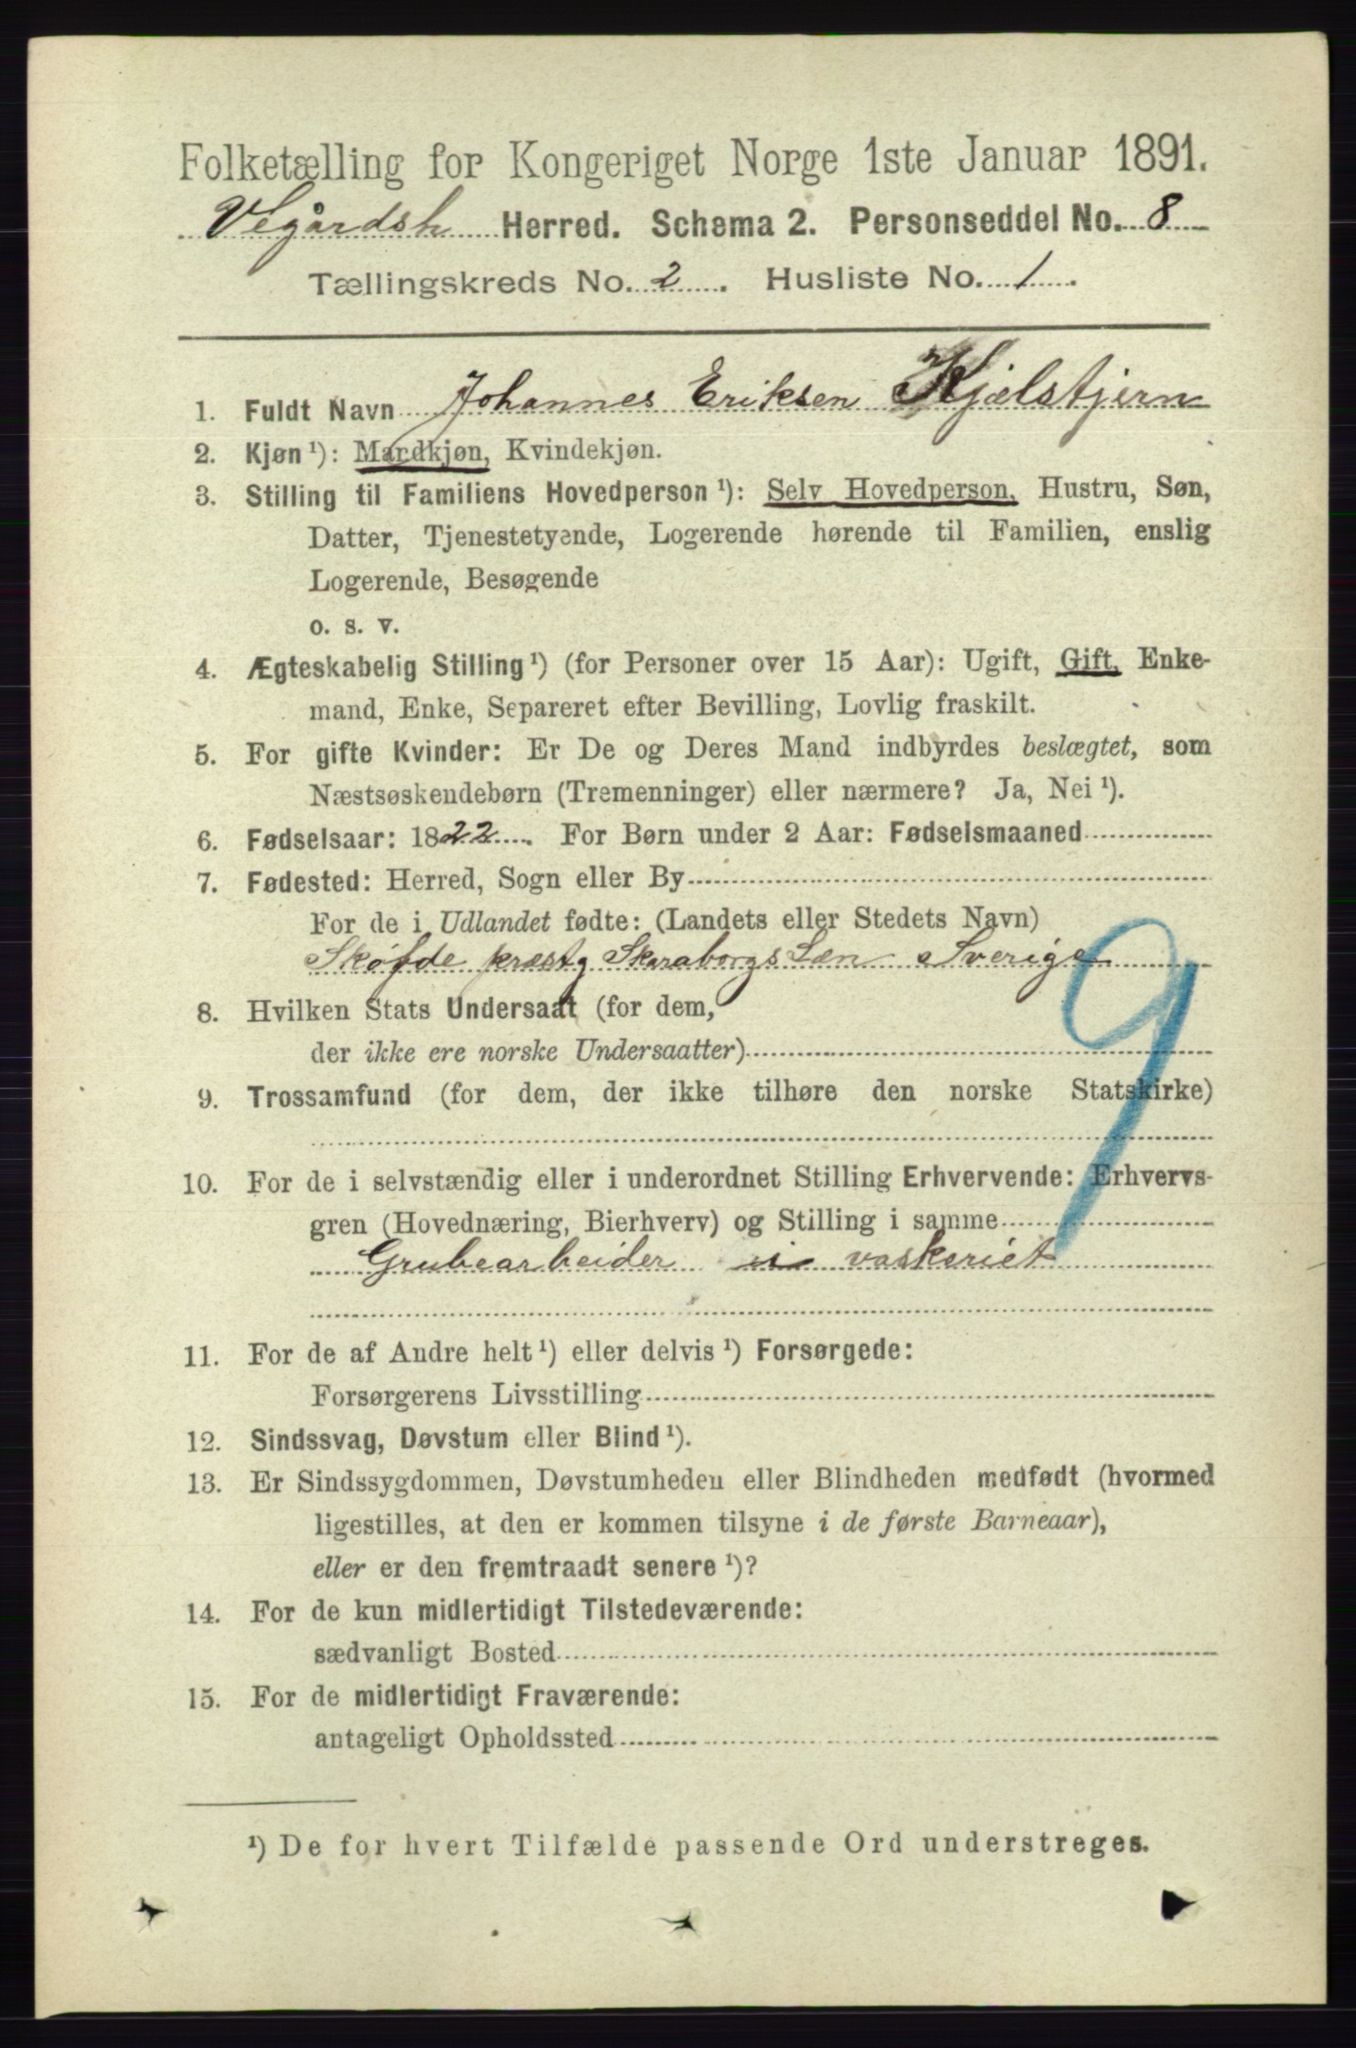 Folketælling for Kongeriget Norge 1ste Januar 1891.
Vegårdsh Herred. Schema 2. Personseddel No. 8
Tællingskreds No. 2. Husliste No. 1.
1. Fuldt Navn Johannes Eriksen Kjælstjern
2. Kjøn ¹): Mandkjøn, Kvindekjøn.
3. Stilling til Familiens Hovedperson ¹): Selv Hovedperson, Hustru, Søn,
Datter, Tjenestetyende, Logerende hørende til Familien, enslig
Logerende, Besøgende
o. s. v.
4. Ægteskabelig Stilling ¹) (for Personer over 15 Aar): Ugift, Gift, Enke-
mand, Enke, Separeret efter Bevilling, Lovlig fraskilt.
5. For gifte Kvinder: Er De og Deres Mand indbyrdes beslægtet, som
Næstsøskendebørn (Tremenninger) eller nærmere? Ja, Nei ¹).
6. Fødselsaar: 1822. For Børn under 2 Aar: Fødselsmaaned
7. Fødested: Herred, Sogn eller By
For de i Udlandet fødte: (Landets eller Stedets Navn)
Skøfde præstg Skaraborgs Læn Sverige
8. Hvilken Stats Undersaat (for dem,
der ikke ere norske Undersaatter)
9. Trossamfund (for dem, der ikke tilhøre den norske Statskirke)
9
10. For de i selvstændig eller i underordnet Stilling Erhvervende: Erhvervs-
gren (Hovednæring, Bierhverv) og Stilling i samme
Grubearbeider i vaskeriet
11. For de af Andre helt ¹) eller delvis ¹) Forsørgede:
Forsørgerens Livsstilling
12. Sindssvag, Døvstum eller Blind ¹).
13. Er Sindssygdommen, Døvstumheden eller Blindheden medfødt (hvormed
ligestilles, at den er kommen tilsyne i de første Barneaar),
eller er den fremtraadt senere ¹)?
14. For de kun midlertidigt Tilstedeværende:
sædvanligt Bosted
15. For de midlertidigt Fraværende:
antageligt Opholdssted
¹) De for hvert Tilfælde passende Ord understreges.